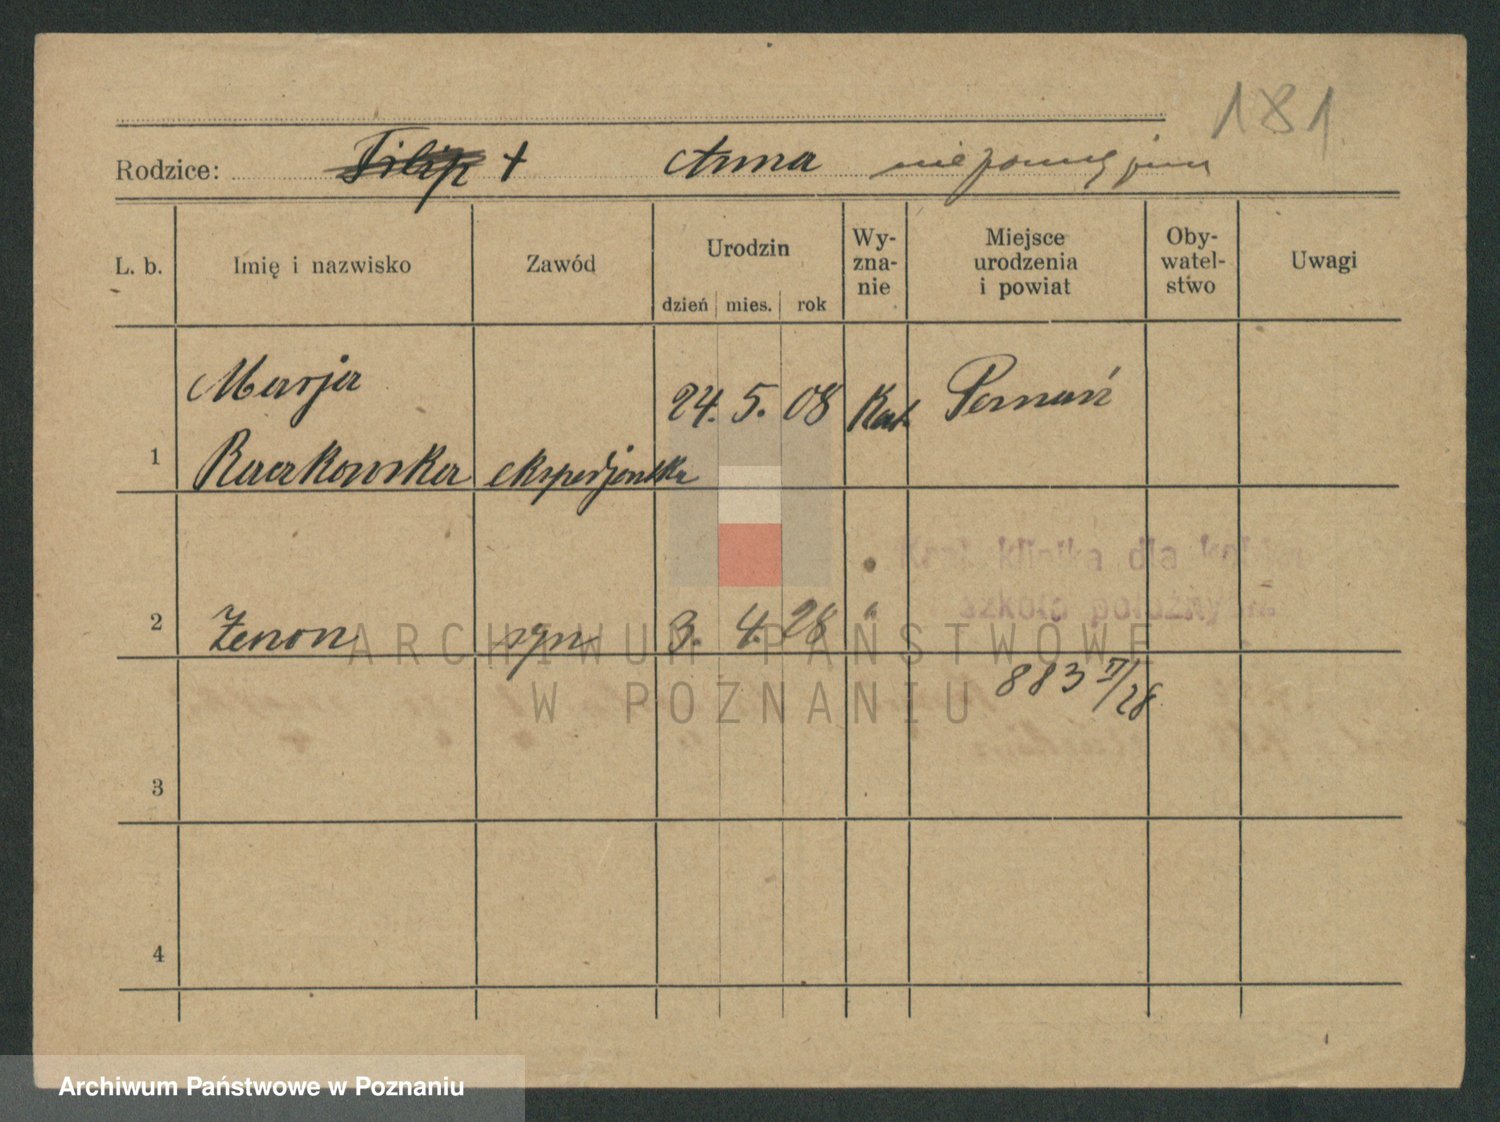 181
Rodzice: Filip + Anna
L. b. Imię i nazwisko Zawód Urodzin dzień mies. rok Wy-zna-nie Miejsce urodzenia i powiat Oby-watel-stwo Uwagi
Marja 24. 5. 08 Kat. Poznań
1 Raczkowska ekspedjentka
klinika dla kobiet
szkoła położnych
2 Zenon syn 3. 4. 28 "
883 II/28
ARCHIWUM PAŃSTWOWE
W POZNANIU
3
4
Archiwum Państwowe w Poznaniu